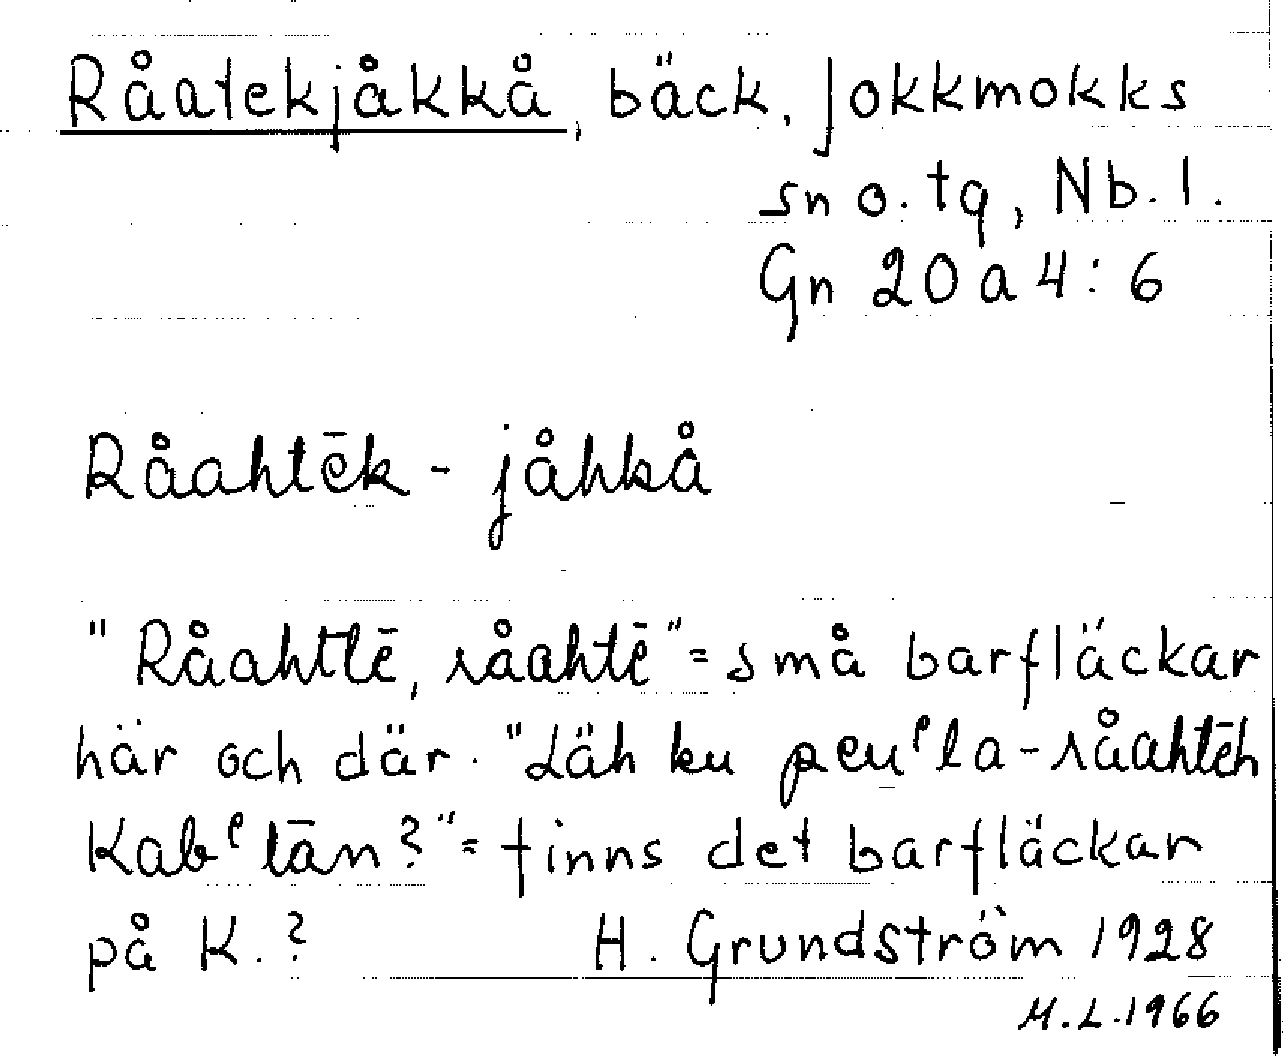 Råatekjåkkå, bäck, Jokkmokks
sn o. tg, Nb. l.
Gn 20 a 4:6
Råahtēk - jåhkå
"Råahttē, råahtē" = små barfläckar
här och där. "Läh ku peuˁla-råahtēh
Kabˁtān?" = finns det barfläckar
på K.? H. Grundström 1928
M.L.1966